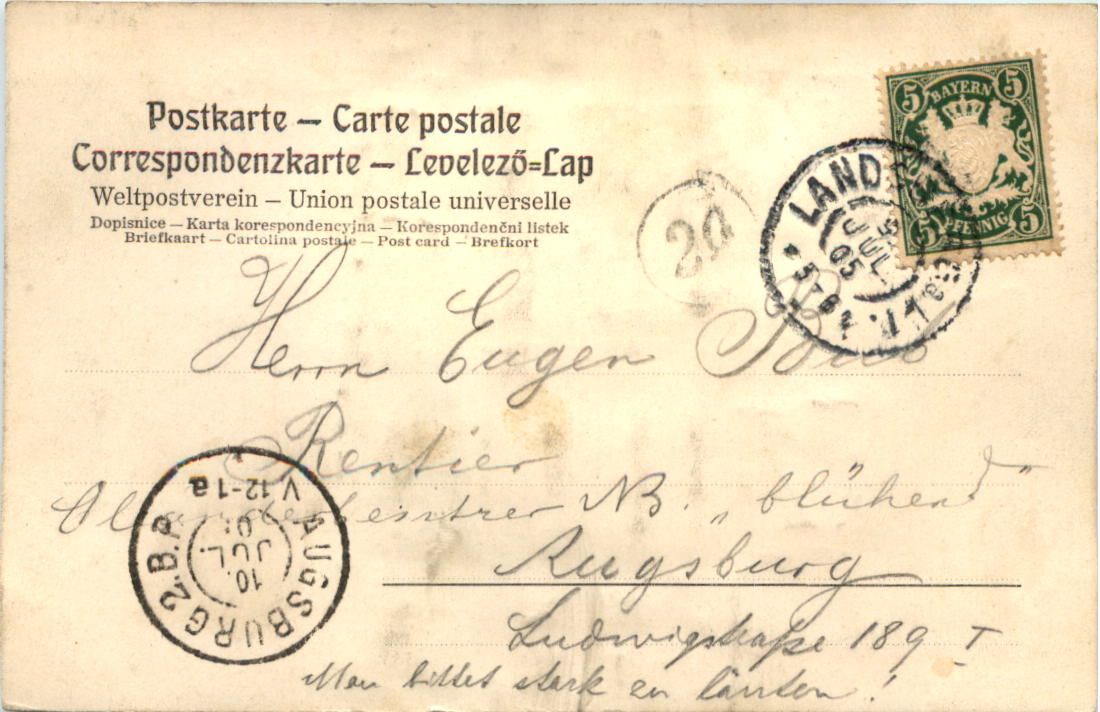 Postkarte — Carte postale
Correspondenzkarte — Levelező=Lap
Weltpostverein — Union postale universelle
Dopisnice — Karta korespondencyjna — Korespondenční listek
Briefkaart — Cartolina postale — Post card — Brefkort
5 5
BAYERN
PFENNIG
5 5
LAND
JUL
05
20
Herrn Eugen
Rentier
NB. „blühend"
Augsburg
Ludwigstraße 189 I
Man bittet stark zu läuten!
AUGSBURG 2.B.P.
V 12-1a
10.
JUL.